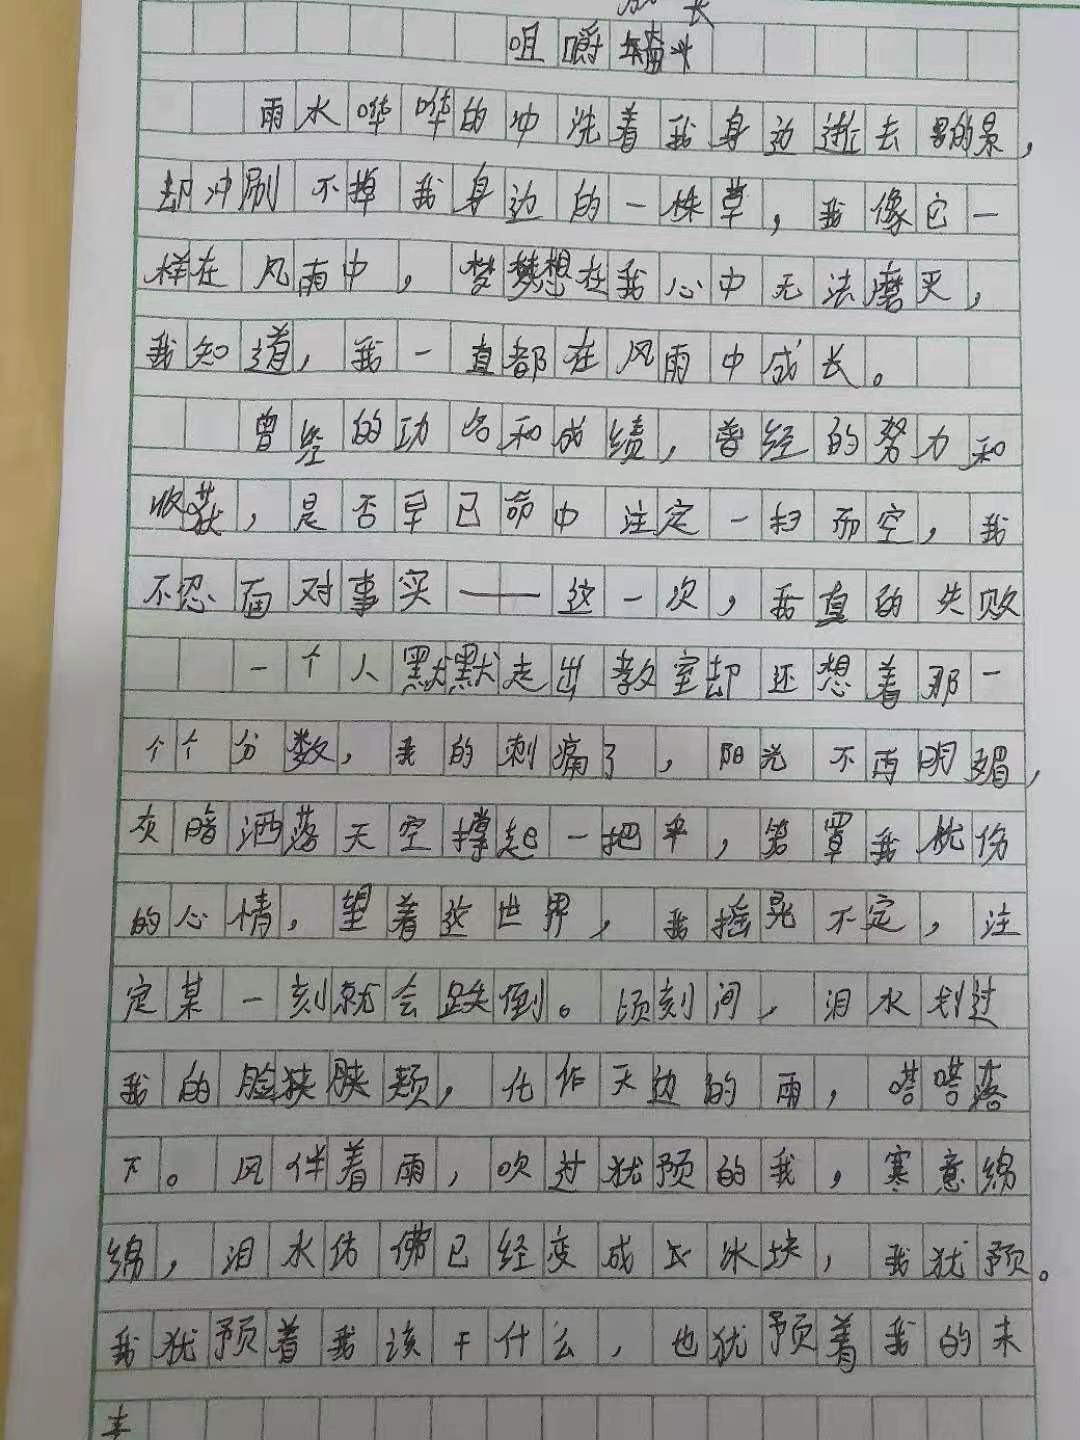 成长
咀嚼
雨水哗哗的冲洗着我身边逝去的景,
却冲刷不掉我身边的一株草,我像它一
样在风雨中,梦梦想在我心中无法磨灭,
我知道,我一直都在风雨中成长。
曾经的功名和成绩,曾经的努力和
收获,是否早已命中注定一扫而空,我
不忍面对事实——这一次,我真的失败
一个人默默走出教室却还想着那一
个个分数,我的刺痛了,阳光不再明媚,
灰暗洒落天空撑起一把伞,笼罩我忧伤
的心情,望着这世界,我摇晃不定,注
定某一刻就会跌倒。顷刻间,泪水划过
我的脸狭脥颊,化作天边的雨,嗒嗒落
下。风伴着雨,吹过犹预的我,寒意绵
绵,泪水仿佛已经变成冰块,我犹预。
我犹预着我该干什么,也犹预着我的未
来